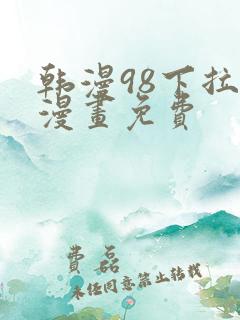 韩漫98下拉
漫畫免費
費磊
未任同意禁止转载